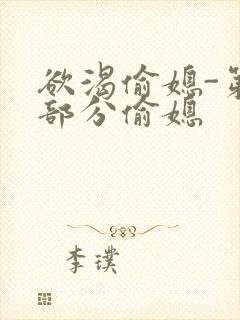 欲渴偷媳-第
部分偷媳
李璞